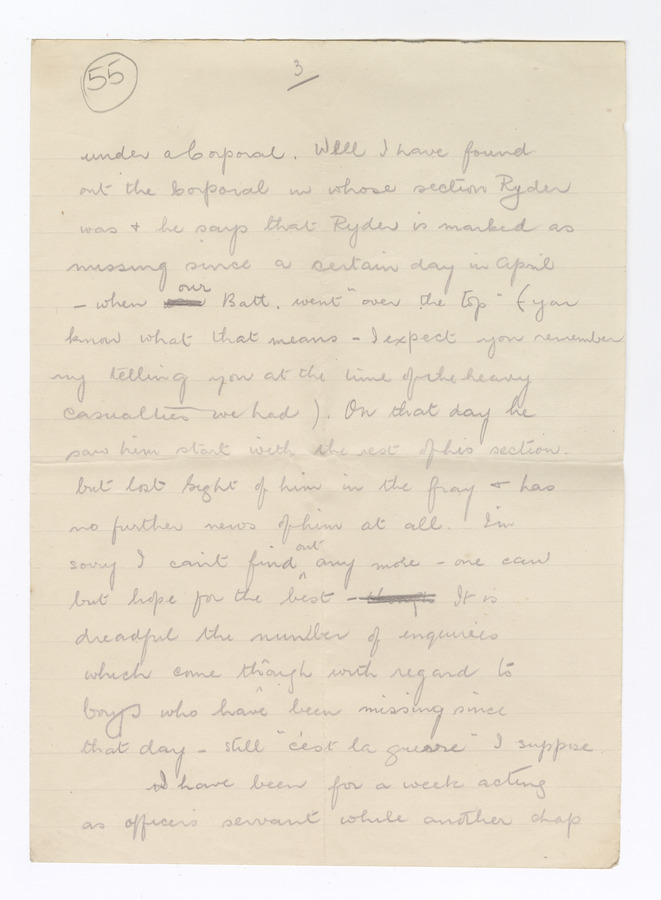 55
3
under a Corporal. Well I have found
out the Corporal in whose section Ryder
was & he says that Ryder is marked as
missing since a certain day in April
- when our Batt. went "over the top" (you
know what that means - I expect you remember
my telling you at the time of the heavy
casualties we had). On that day he
saw him start with the rest of his section
but lost sight of him in the fray & has
no further news of him at all. I'm
sorry I can't find out any more - one can
but hope for the best - It is
dreadful the number of enquiries
which come though with regard to
boys who have been missing since
that day - still "c'est la guerre" I suppose.
I have been for a week acting
as officers servant while another chap